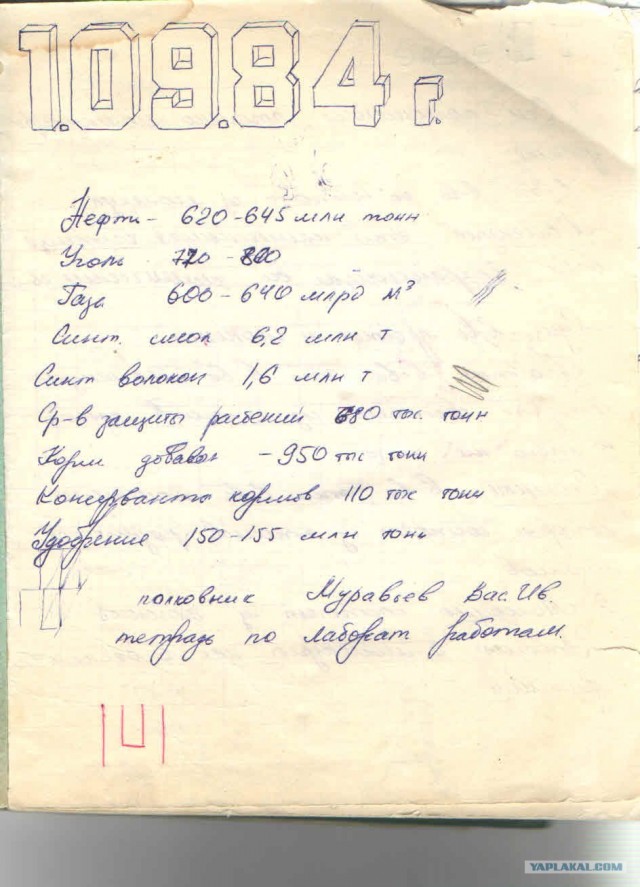 1.09.84 г.
Нефти - 620-645 млн тонн
Угля 770-800
Газа 600-640 млрд м³
Синт. смол 6,2 млн т
Синт волокон 1,6 млн т
Ср-в защиты растений 680 тыс. тонн
Корм. добавок -950 тыс тонн
Консерванты кормов 110 тыс тонн
Удобрение 150-155 млн тонн
полковник Муравьев Вас. Ив.
тетрадь по лаборат работам.
YAPLAKAL.COM